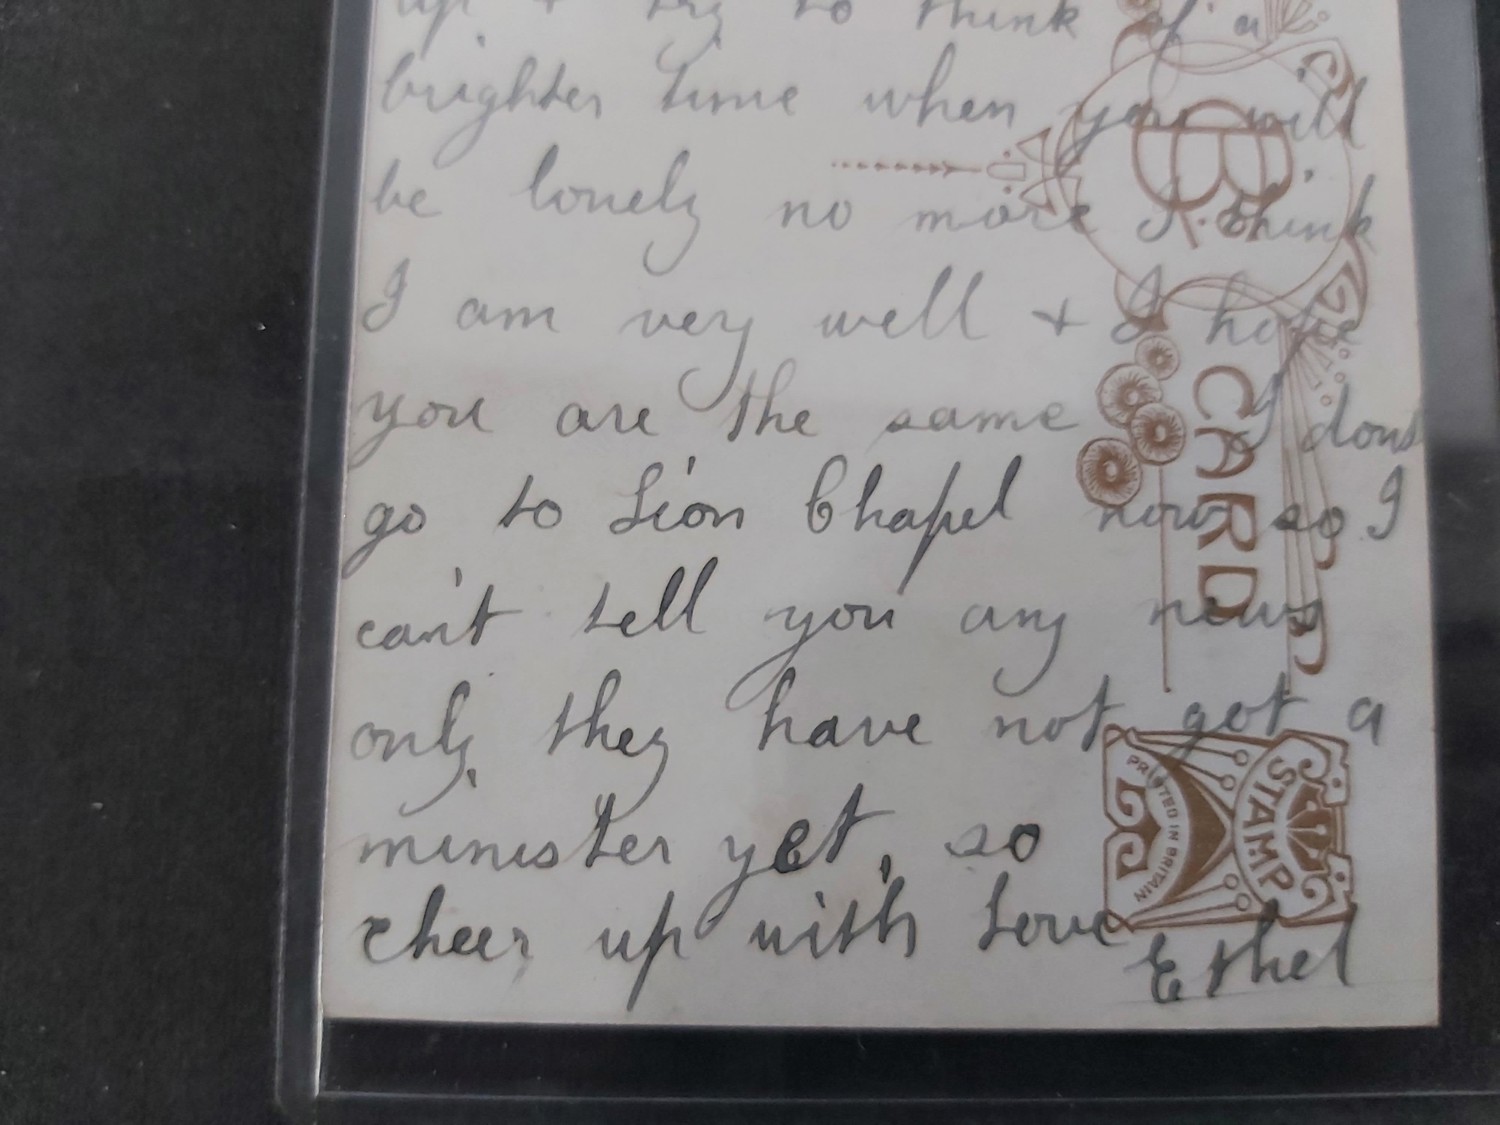 up & try to think of a
brighter time when you will
be lonely no more I think
I am very well & I hope
you are the same I dont
go to Lion Chapel now so I
can't tell you any news
only they have not got a
minister yet, so
cheer up with love
Ethel
CARD
STAMP
PRINTED IN BRITAIN